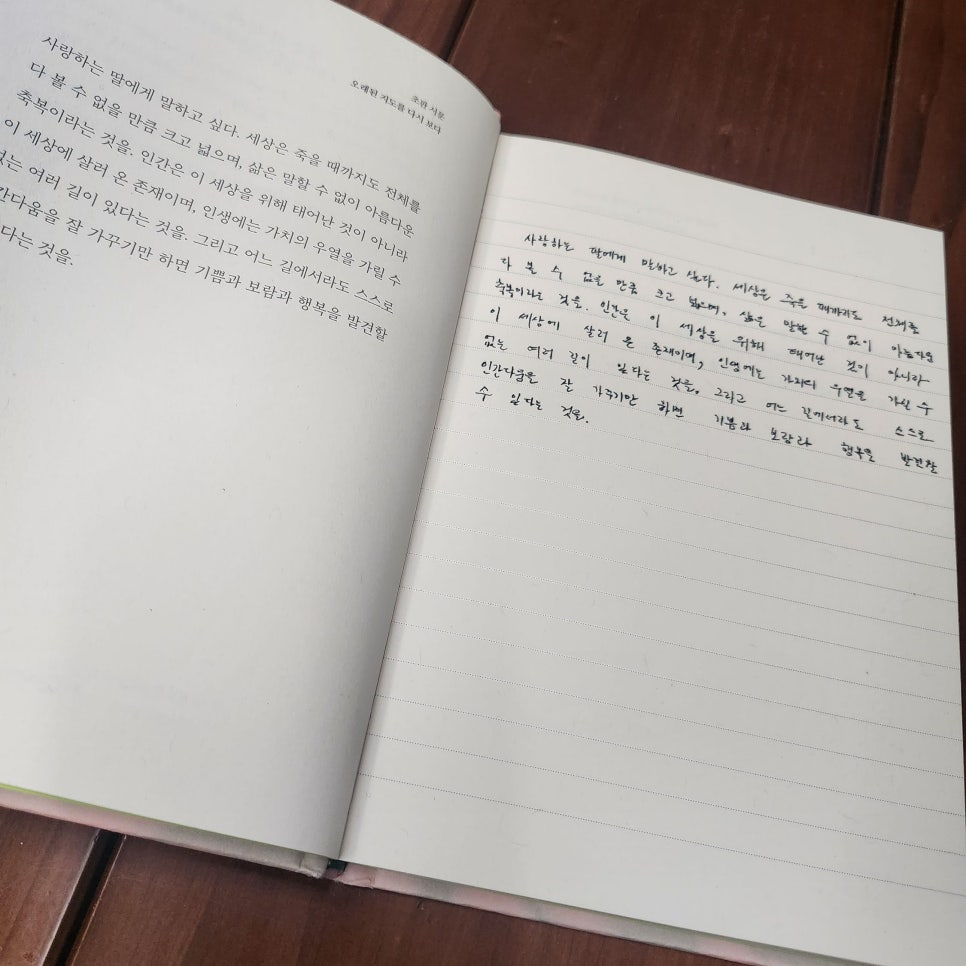 초판 서문
오래된 지도를 다시 보다
사랑하는 딸에게 말하고 싶다. 세상은 죽을 때까지도 전체를
다 볼 수 없을 만큼 크고 넓으며, 삶은 말할 수 없이 아름다운
축복이라는 것을. 인간은 이 세상을 위해 태어난 것이 아니라
이 세상에 살러 온 존재이며, 인생에는 가치의 우열을 가릴 수
없는 여러 길이 있다는 것을. 그리고 어느 길에서라도 스스로
간다움을 잘 가꾸기만 하면 기쁨과 보람과 행복을 발견할
다는 것을.
사랑하는 딸에게 말하고 싶다. 세상은 죽을 때까지도 전체를
다 볼 수 없을 만큼 크고 넓으며, 삶은 말할 수 없이 아름다운
축복이라는 것을. 인간은 이 세상을 위해 태어난 것이 아니라
이 세상에 살러 온 존재이며, 인생에는 가치의 우열을 가릴 수
없는 여러 길이 있다는 것을. 그리고 어느 길에서라도 스스로
인간다움을 잘 가꾸기만 하면 기쁨과 보람과 행복을 발견할
수 있다는 것을.